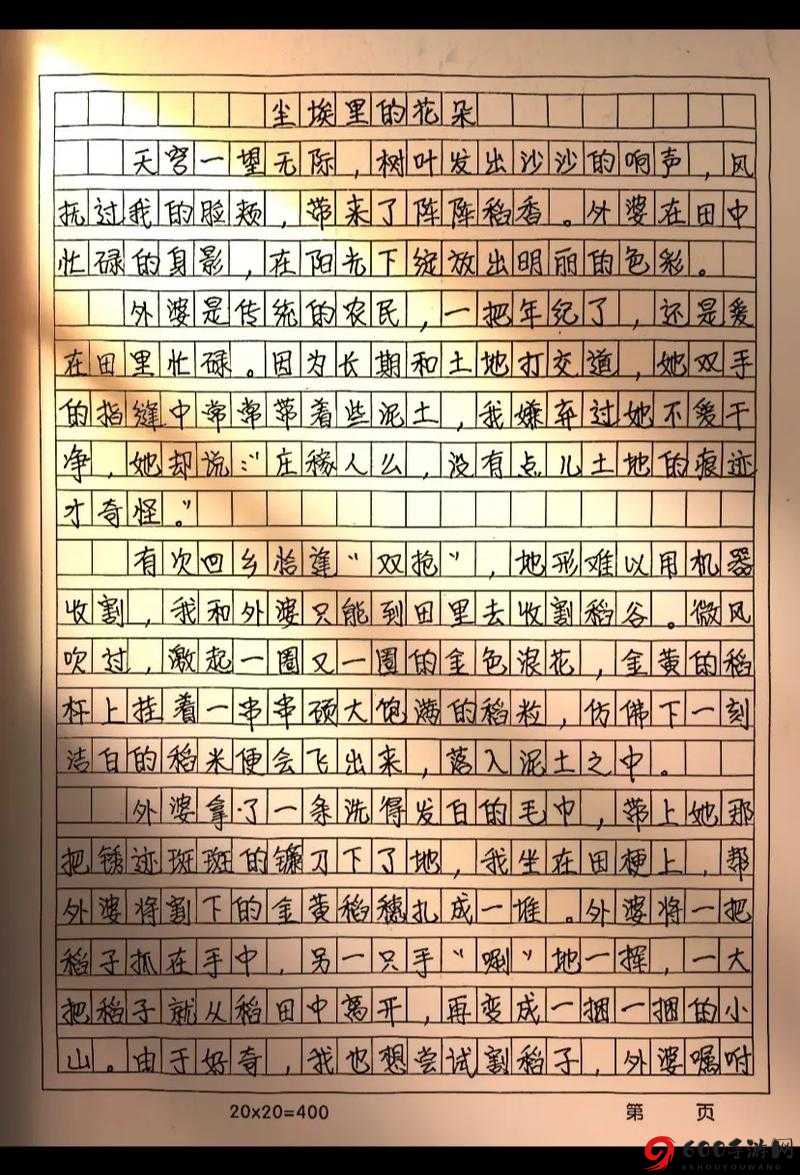 尘埃里的花朵
天穹一望无际，树叶发出沙沙的响声，风
抚过我的脸颊，带来了阵阵稻香。外婆在田中
忙碌的身影，在阳光下绽放出明丽的色彩。
外婆是传统的农民，一把年纪了，还是爱
在田里忙碌。因为长期和土地打交道，她双手
的指缝中常常带着些泥土，我嫌弃过她不爱干
净，她却说：“庄稼人么，没有点儿土地的痕迹
才奇怪。”
有次回乡恰逢“双抢”，地形难以用机器
收割，我和外婆只能到田里去收割稻谷。微风
吹过，激起一圈又一圈的金色浪花，金黄的稻
杆上挂着一串串硕大饱满的稻粒，仿佛下一刻
洁白的稻米便会飞出来，落入泥土之中。
外婆拿了一条洗得发白的毛巾，带上她那
把锈迹斑斑的镰刀下了地，我坐在田梗上，帮
外婆将割下的金黄稻穗扎成一堆。外婆将一把
稻子抓在手中，另一只手“唰”地一挥，一大
把稻子就从稻田中离开，再变成一捆一捆的小
山。由于好奇，我也想尝试割稻子，外婆嘱咐
20×20=400 第 页
600手游网